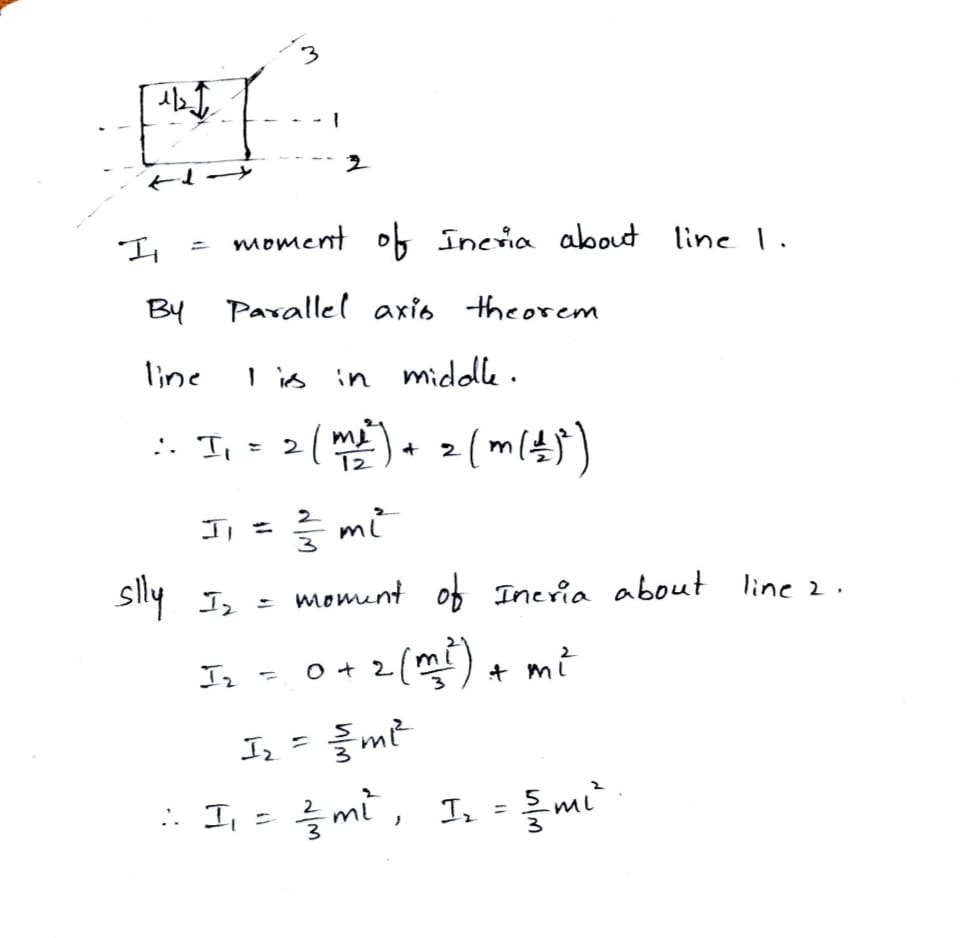 3
l/2
1
2
l
I₁ = moment of Ineria about line 1.
By Parallel axis theorem
line 1 is in middle.
∴ I₁ = 2(ml²/12) + 2(m(l/2)²)
I₁ = 2/3 ml²
slly I₂ = moment of Ineria about line 2.
I₂ = 0 + 2(ml²/3) + ml²
I₂ = 5/3 ml²
∴ I₁ = 2/3 ml², I₂ = 5/3 ml².